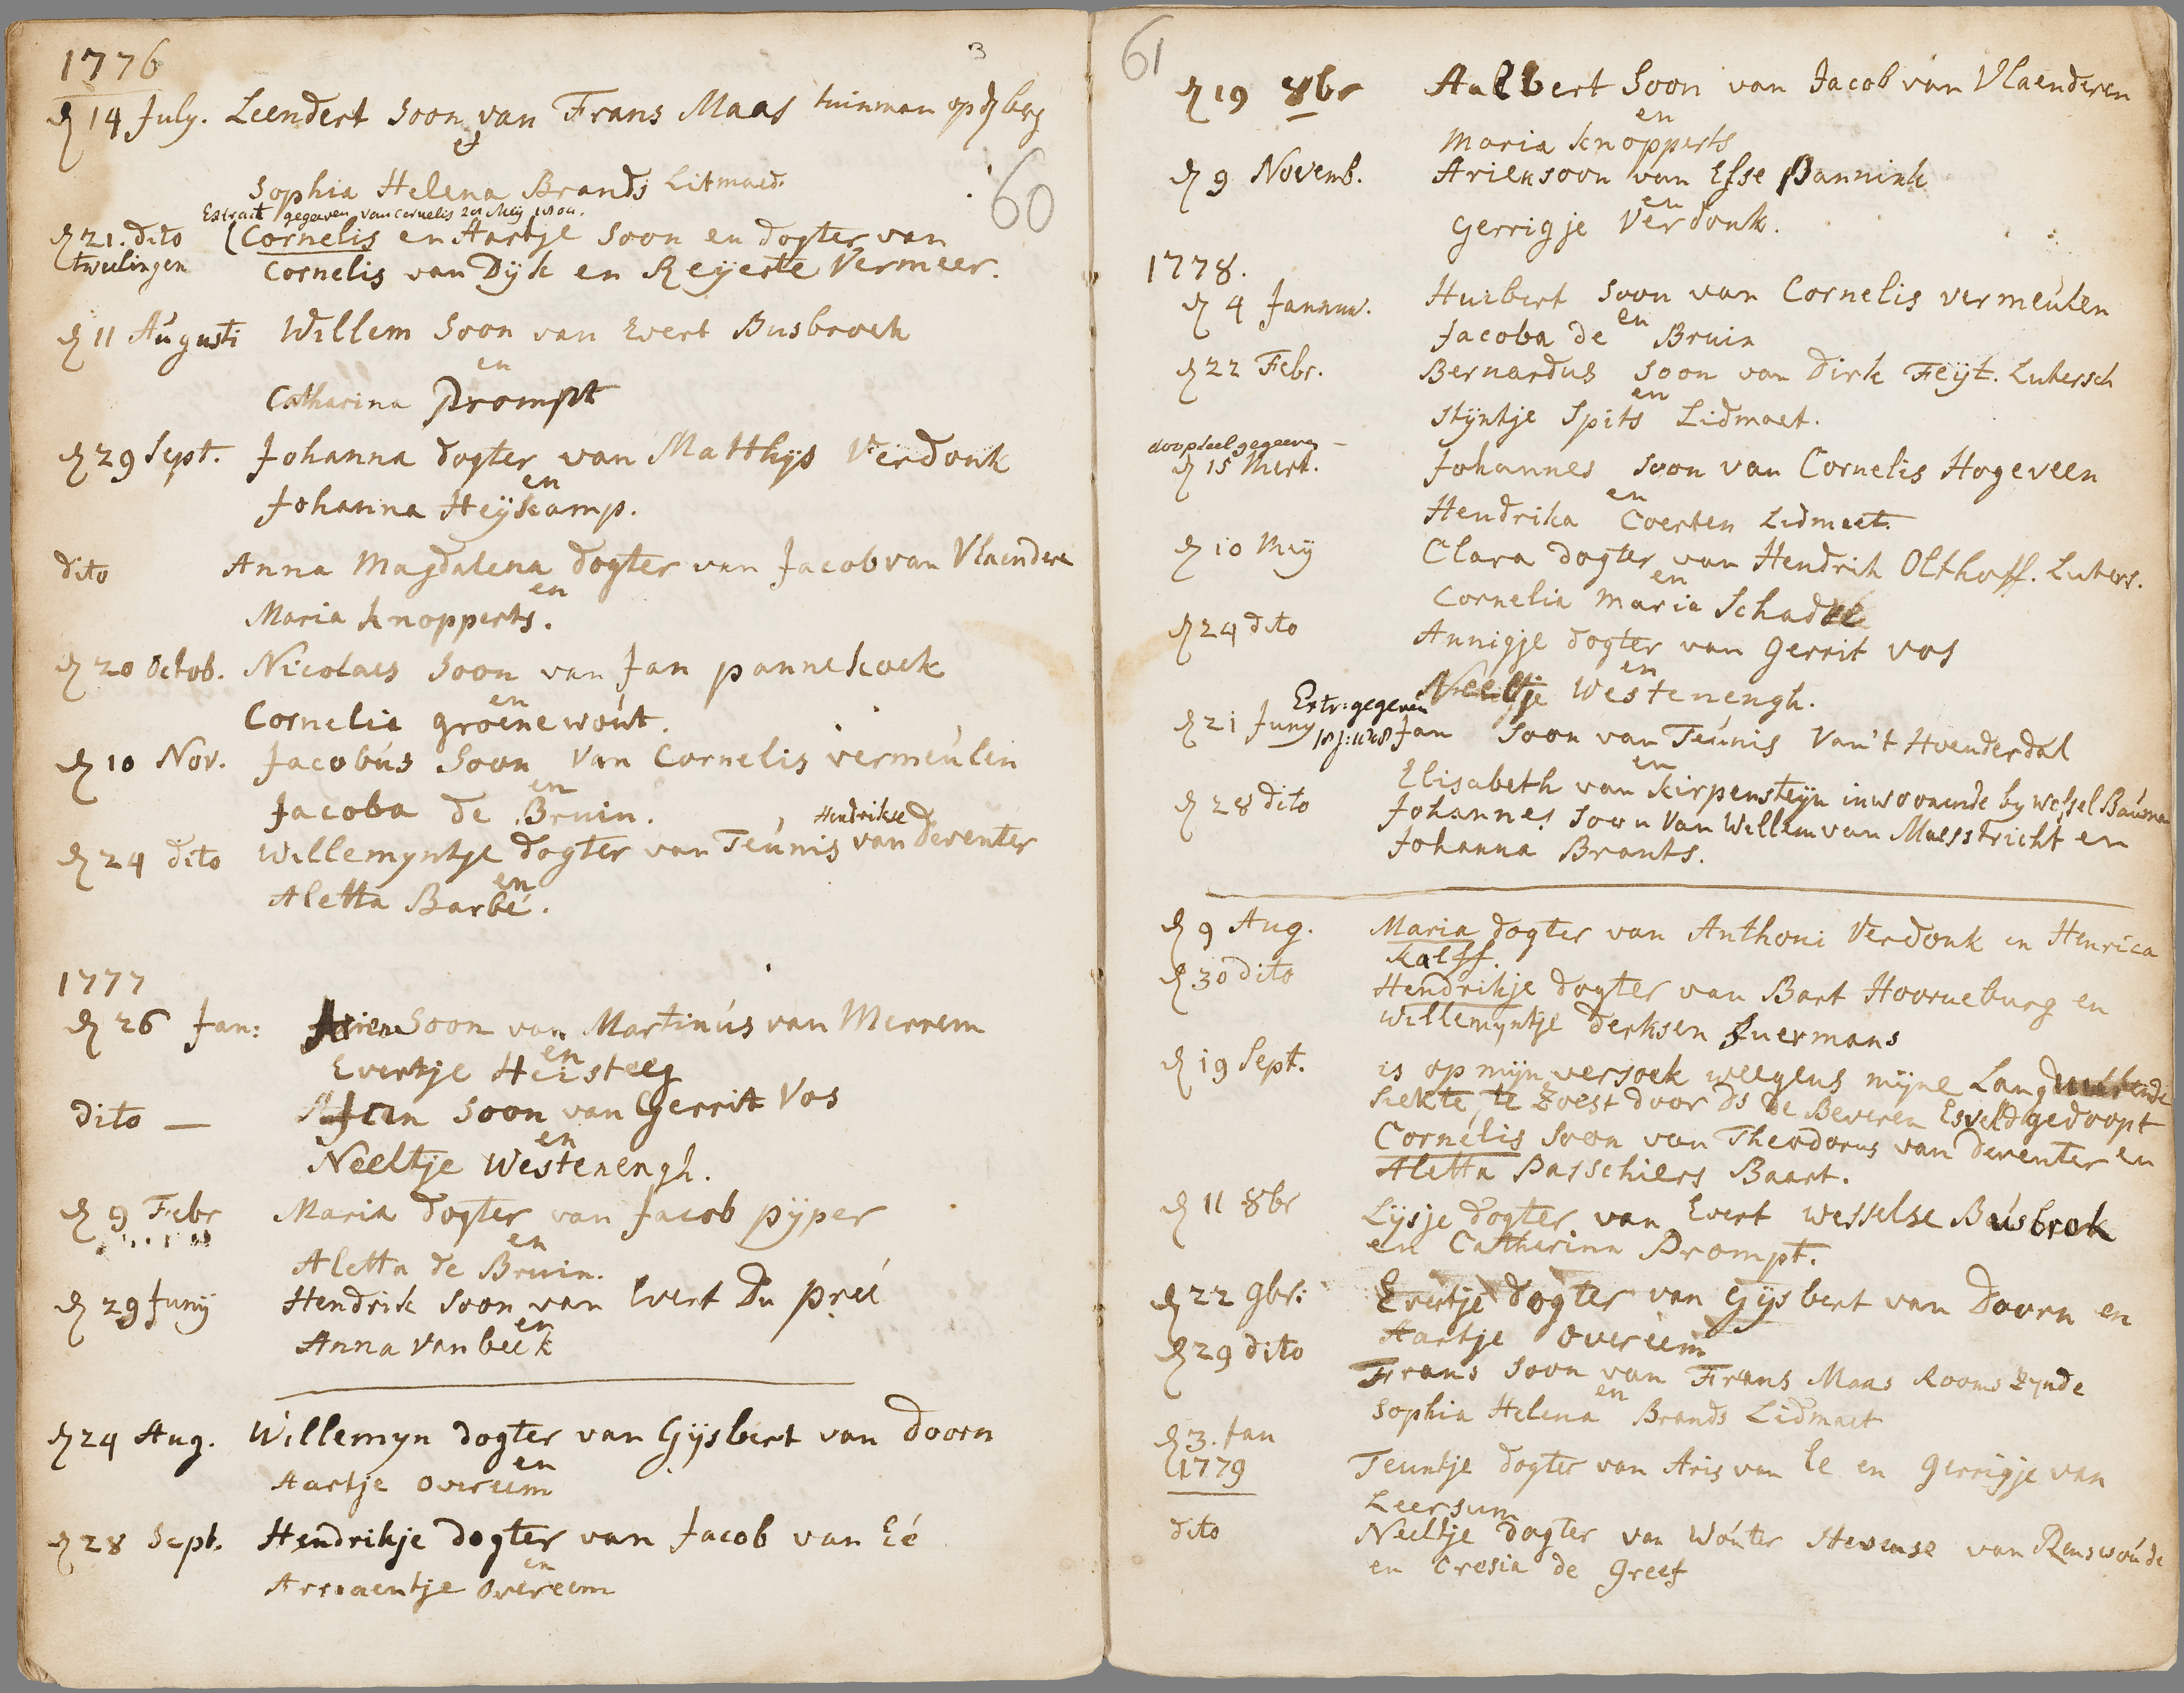 1776
3
d 14 July. Leendert Soon van Frans Maas tuinman op d berg
et
Sophia Helena Brands Litmaed.
60
Extract gegeeven van Cornelis 20 Meij
d 21. dito (Cornelis en Aartje Soon en dogter van
tweelingen Cornelis van Dÿk en Reijertie Vermeer.
d 11 Augusti Willem Soon van Evert Busbroek
en
Catharina Prompt
d 29 Sept. Johanna dogter van Matthijs Verdonk
en
Johanna Heÿkamp.
dito Anna Magdalena dogter van Jacob van Vlaendere
en
Maria Knopperts.
d 20 Octob. Nicolaes Soon van Jan pannekoek
en
Cornelia groenewout.
d 10 Nov. Jacobús Soon Van Cornelis vermeúlen
en
Jacoba de Bruin.
Hendrikse
d 24 dito Willemyntje dogter van Teúnis van Deventer
en
Aletta Barbé.
1777
d 26 Jan: Arien Soon van Martinús van Merrem
en
Evertje Heisteeg
dito — Jan Soon van Gerrit Vos
en
Neeltje Westenengh.
d 9 Febr Maria dogter van Jacob pÿper
en
Aletta de Bruin.
d 29 Junÿ Hendrik Soon van Evert Du preé
en
Anna van beek
d 24 Aug. Willemyn dogter van Gijsbert van Doorn
en
Aartje overeem
d 28 Sept. Hendrikje dogter van Jacob van Eé
en
overeem
61
d 19 8br Aalbert Soon van Jacob van Vlaenderen
en
Maria Knopperts
d 9 Novemb. Arien soon van Esse Bannink
en
Gerrigje Verdonk.
1778.
d 4 Januw. Huibert Soon van Cornelis vermeúlen
en
Jacoba de Bruin
d 22 Febr. Bernardus Soon van Dirk Feÿt. Lutersch
en
Stÿntje Spits Lidmaet.
doopseel gegeeven —
d 15 Mert. Johannes Soon van Cornelis Hogeveen
en
Hendrika Coerten Lidmaet.
d 10 Meij Clara dogter van Hendrik Olthoff. Luters.
en
Cornelia Maria Schadee
d 24 dito Annigje dogter van Gerrit vos
en
Neeltje Westenengh.
Extr: gegeven
d 21 Juny Jan Soon van Teúnis Van't Hoenderdal
en
Elisabeth van Kirpensteÿn inwoonende by Wessel Bauman
d 28 dito Johannes Soon Van Willem van Maesstricht en
Johanna Brants.
d 9 Aug. Maria dogter van Anthoni Verdonk en Henrica
Kalff.
d 30 dito Hendrikje dogter van Bart Hoorneburg en
Willemyntje Derksen Zuermans
d 19 Sept. is op mijn versoek weegens mijne Langduurende
siekte, te Zoest door Ds de Beveren Esveld gedoopt
Cornélis Soon van Theodorus van Deventer en
Aletta Passchiers Baart.
d 11 8br Lijsje dogter van Evert wesselse Bausbrok
en Catharina Prompt.
d 22 9br: Evertje dogter van Gijsbert van Doorn en
Aartje overeem
d 29 dito Frans Soon van Frans Maas Rooms Zijnde
en
Sophia Helena Brands Lidmaet
d 3. Jan
1779 Teuntje dogter van Aris van Ee en Gerrigje van
Leersum
dito Neeltje dogter van Woúter Stevense van Renswoúde
en Cresia de Greef